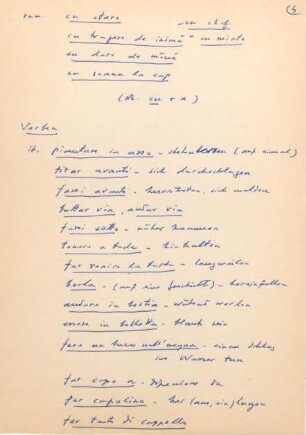 (4
rum. cu stare cu chef
cu tragere de inimă - cu minte
cu dare de mână
cu scaun la cap
(Nb. cu + x)
Verben
it. piantare in asso - stehenlassen (auf einmal)
tirar avanti - sich durchschlagen
farsi avanti - hervortreten, sich melden
buttar via, andar via
farsi sotto - näher kommen
tenere a bada - hinhalten
far venire la barba - langweilen
berla - (auf eine Geschichte) - hereinfallen
andare in bestia - wütend werden
essere in bolletta - blank sein
fare un buco nell'acqua - einen Schlag
ins Wasser tun
far capo a - dipendere da
far capolino - her (aus, ein) lugen
far tanto di cappello